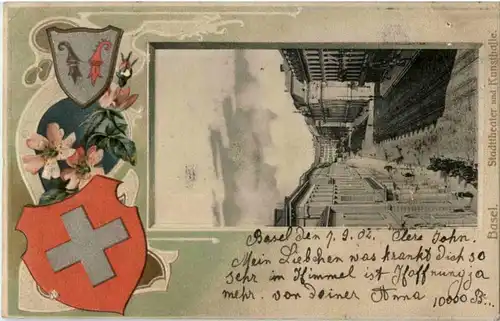 Basel.
Stadttheater und Kunsthalle.
Basel den 7.9.02. Clere John.
Mein Liebchen was krankt dich so
sehr im Himmel ist Hoffnung ja
mehr. von deiner Anna
10000 B...